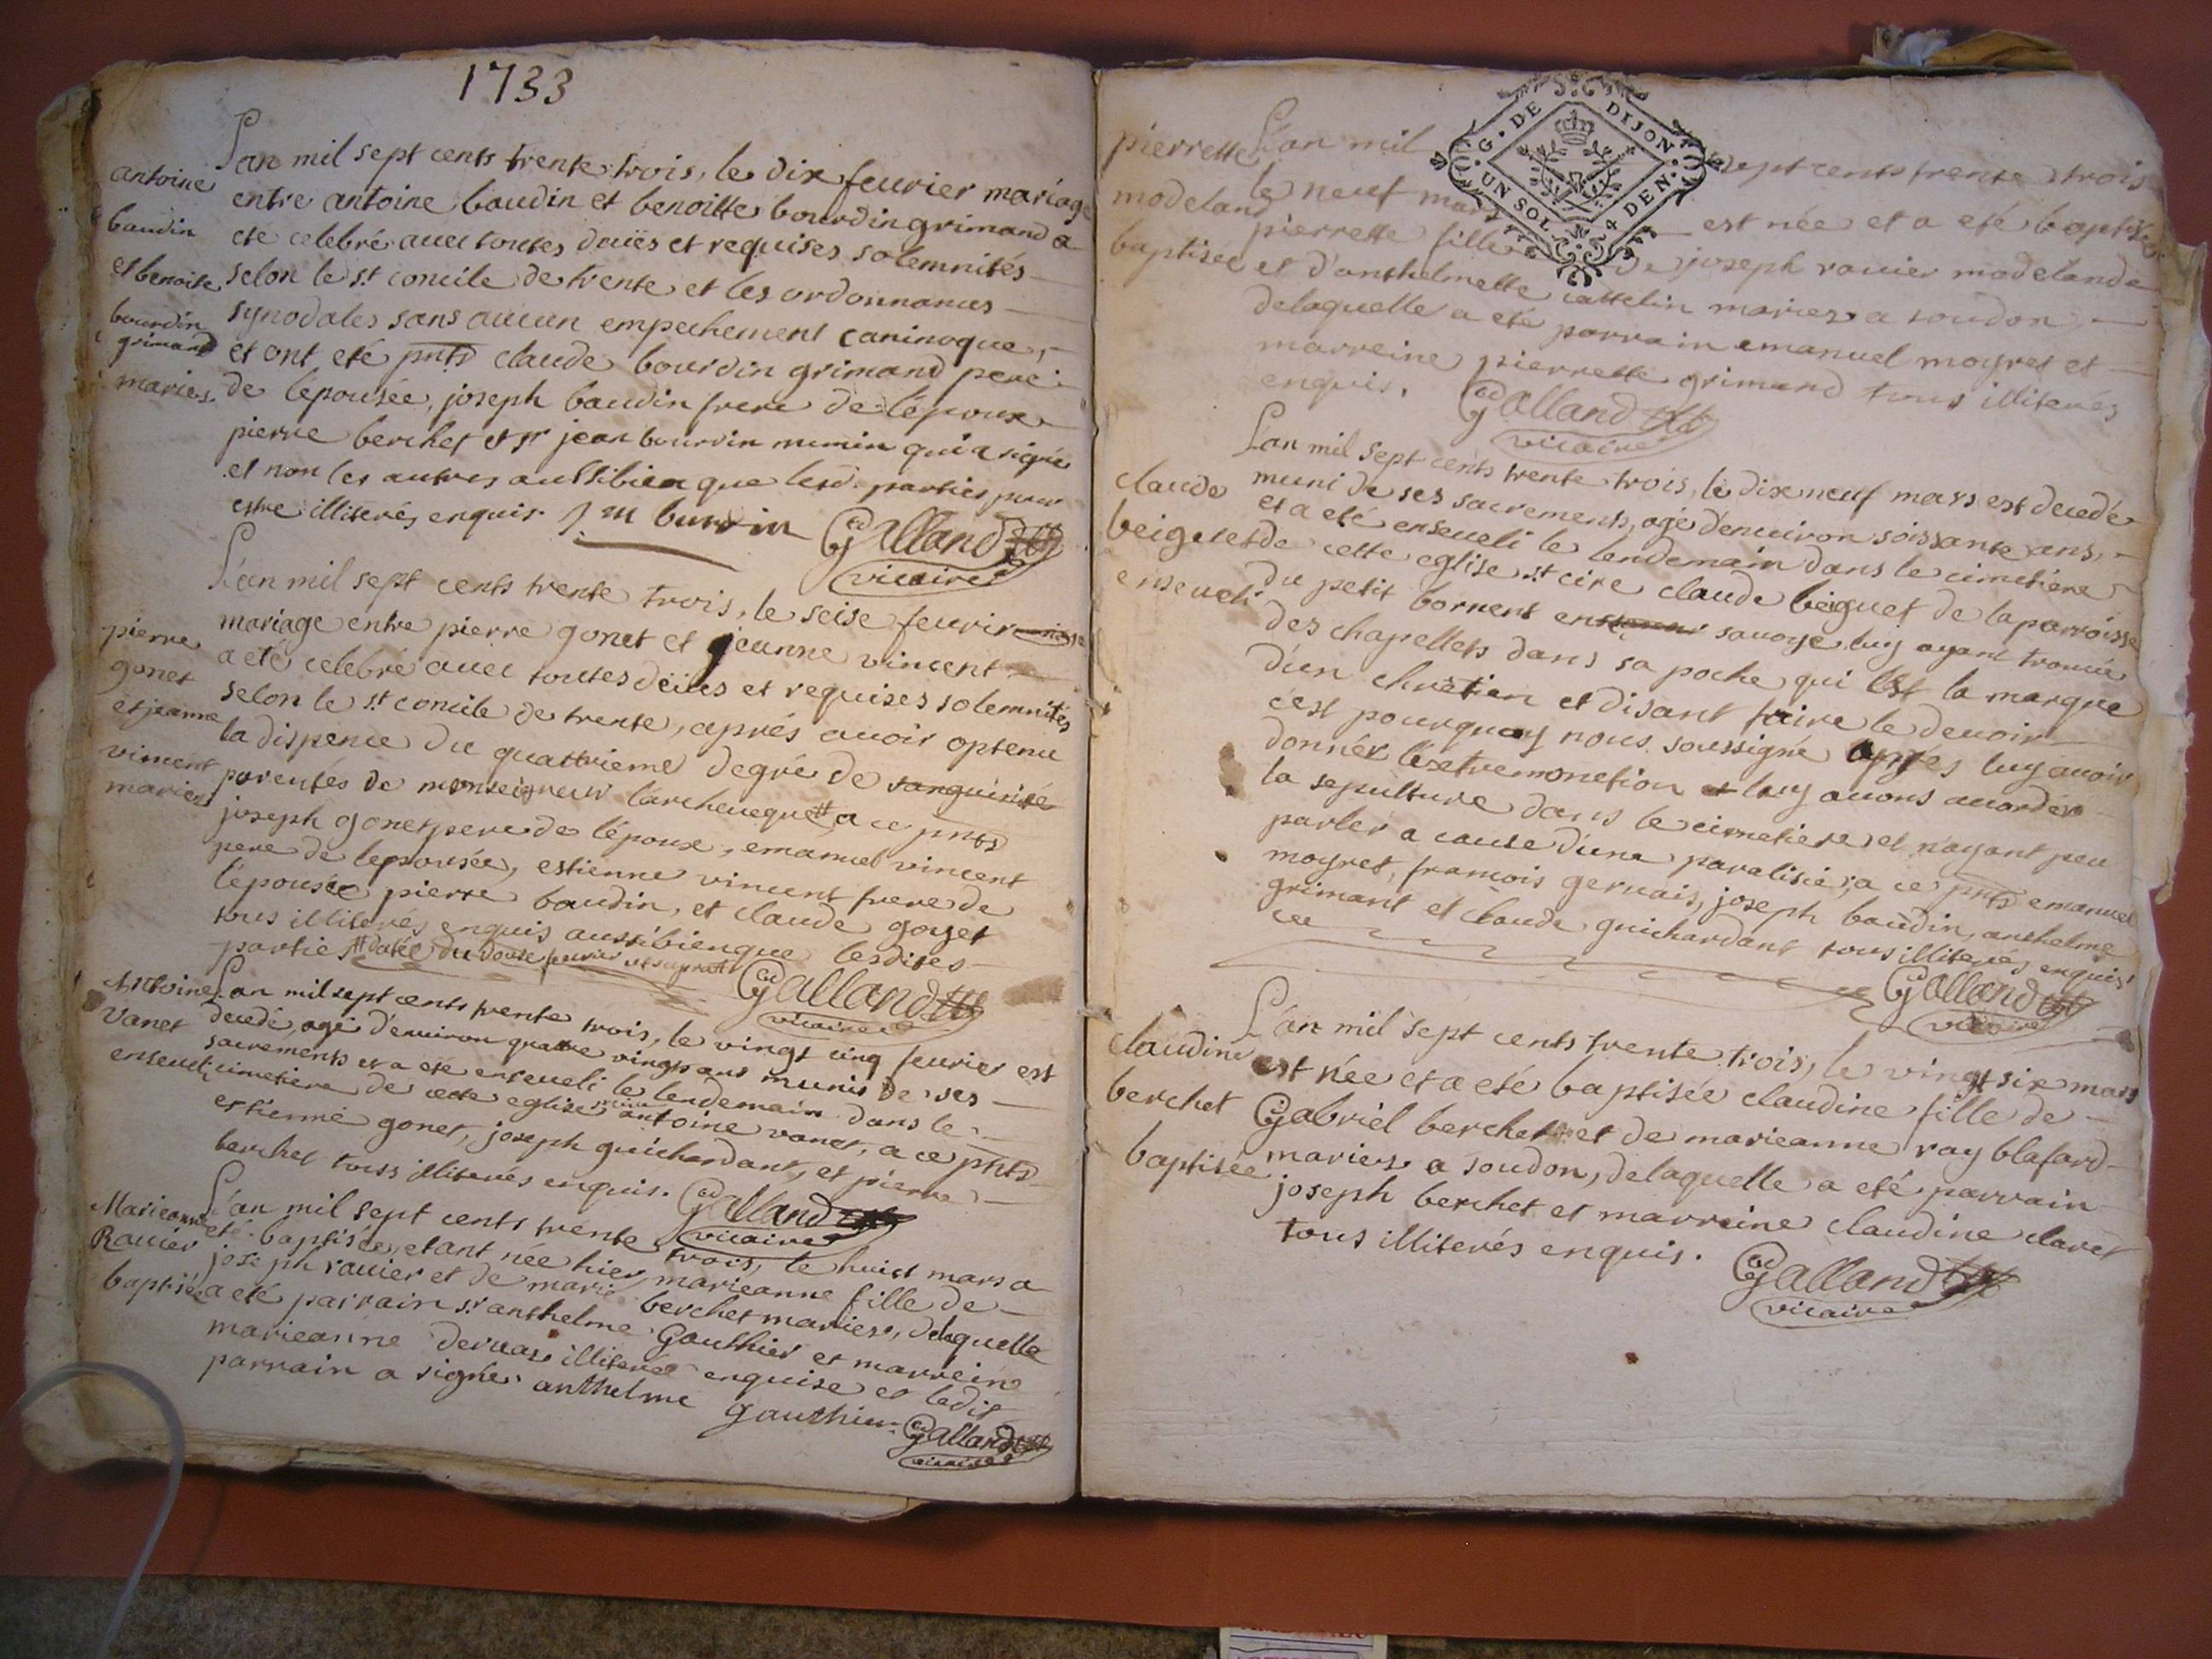 1733
L'an mil sept cents trente trois, le dix feurier mariage
antoine
entre antoine baudin et benoitte bourdin grimand a
baudin
eté celebré auec toutes dües et requises solemnités
et benoite
selon le st concile de trente et les ordonnances
bourdin
synodales sans aucun empechement caninoque,
grimand
et ont eté pnts claude bourdin grimand pere
maries.
de lepousée, joseph baudin frere de l'époux
pierre berchet et sr jean bourdin mumin qui a signé
et non les autres aussibien que lesd. parties pour
estre illiterés enquis. burdin Galland
vicaire
L'an mil sept cents trente trois, le seise feurier
mariage entre pierre gonet et jeanne vincent
pierre
a eté celebré auec toutes deües et requises solemnités
gonet
selon le st concile de trente, aprés auoir optenu
et jeanne
la dispence du quattrieme degré de sanguinité
vincent
parentés de monseigneur l'archeueque # a ce pnts
maries
joseph gonet pere de l'époux, emanuel vincent
pere de lepousée, estienne vincent frere de
l'épousée pierre baudin, et claude goyet
tous illiterés enquis aussibienque lesdites
partie # datée du douse feurier ut supra
Galland
vicaire
Antoine
L'an mil sept cents trente trois, le vingt cinq feurier est
Vanet
decedé, agé d'enuiron quatre vingts ans munis de ses
enseueli
sacrements et a eté enseueli le lendemain dans le
cimetiere de cette eglise antoine vanet, a ce pnts
estienne gonet, joseph guichardant, et pierre
berchet touss illiterés enquis. Galland
vicaire
Marieanne
L'an mil sept cents trente trois, le huict mars a
Rauier
eté baptisée, etant née hier, marieanne fille de
baptisée
joseph rauier et de marie berchet maries, delaquelle
a eté parrain sr anthelme Gauthier et marreine
marieanne deruas illiterée enquise et ledit
parrain a signé. anthelme gauthier Galland
vicaire
G. DE DIJON
UN SOL 4 DEN.
pierrette
L'an mil sept cents trente trois
modeland
le neuf mars est née et a eté baptisée
baptisée
pierrette fille de joseph rauier modelande
et d'anthelmette cattelin maries a soudon,
delaquelle a eté parrain emanuel moyret et
marreine pierrette grimand tous illiterés
enquis. Galland
vicaire
L'an mil sept cents trente trois, le dix neuf mars est decedé
claude
muni de ses sacrements, agé d'enuiron soissante ans,
beiguet
et a eté enseueli le lendemain dans le cimetiere
enseueli
de cette eglise st cire claude beiguet de la parroisse
du petit bornent en sauoye, luy ayant trouué
des chapellets dans sa poche qui est la marque
d'un chrètien et disant faire le deuoir
c'est pourquoy nous soussigné aprés luy auoir
donnér l'extremonction luy auons accordér
la sepulture dans le cimetiere et n'ayant peu
parler a cause d'une paralisie, a ce pnts emanuel
moyret, francois geruais, joseph baudin, anthelme
grimant et claude guichardant tous illiterés enquis
Galland
vicaire
claudine
L'an mil sept cents trente trois, le vingt six mars
berchet
est née et a eté baptisée claudine fille de
baptisée
Gabriel berchet et de marieanne ray blafard
maries a soudon, delaquelle a eté parrain
joseph berchet et marreine claudine claret
tous illiterés enquis.
Galland
vicaire